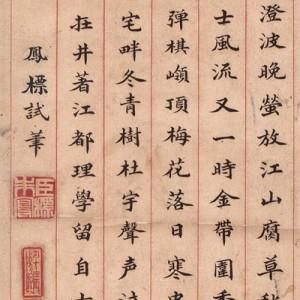 澄波晚螢放江山腐草
士風流又一時金帶圍
彈棋嶺頂梅花落日寒
宅畔冬青樹杜宇聲声
井著江都理學留自
鳳標試筆